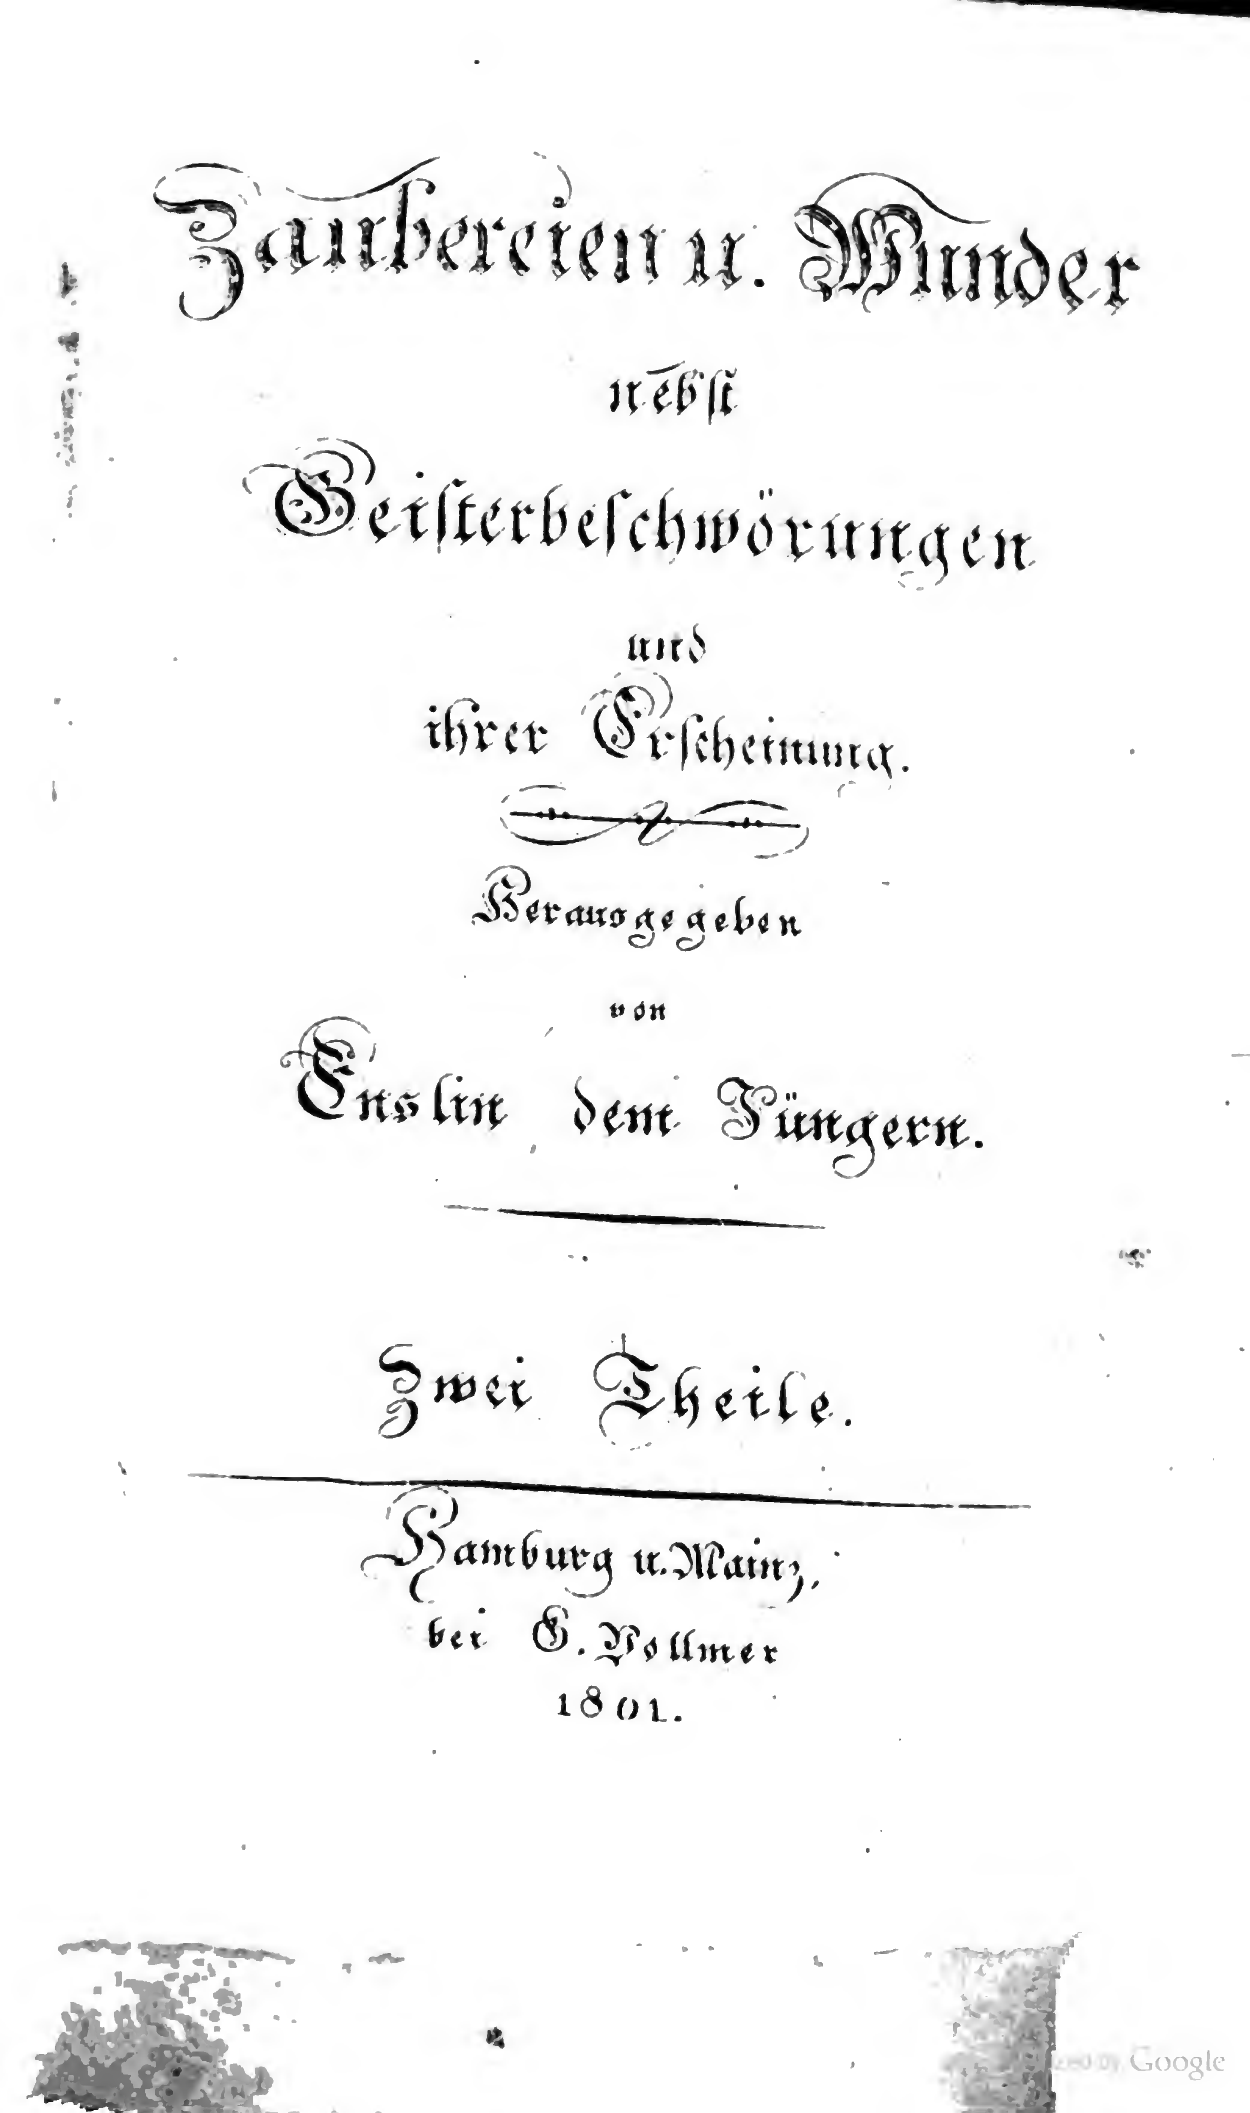 Zaubereien u. Wunder
nebſt
Geiſterbeſchwörungen
und
ihrer Erſcheinung.
Herausgegeben
von
Enslin dem Jüngern.
Zwei Theile.
Hamburg u. Mainz,
bei G. Vollmer
1801.
Google